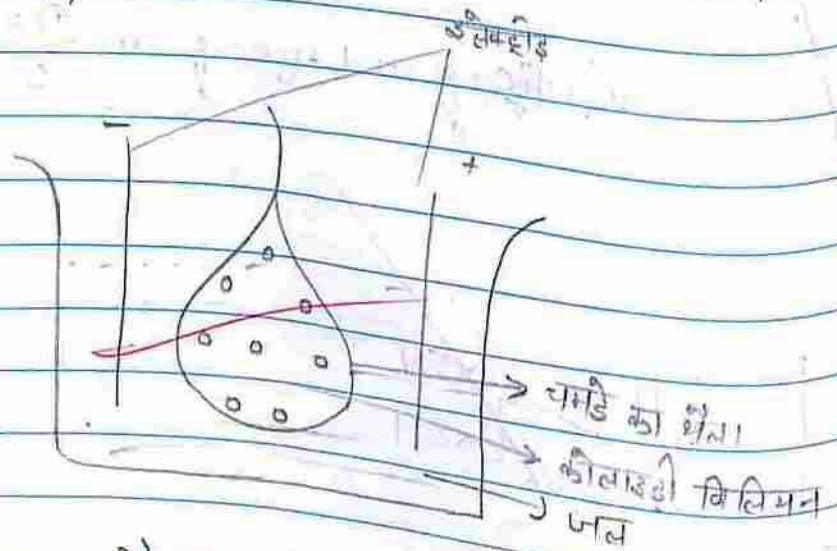 इलेक्ट्रोड
−
+
चमडे का थैला
कोलाइडी विलियन
जल